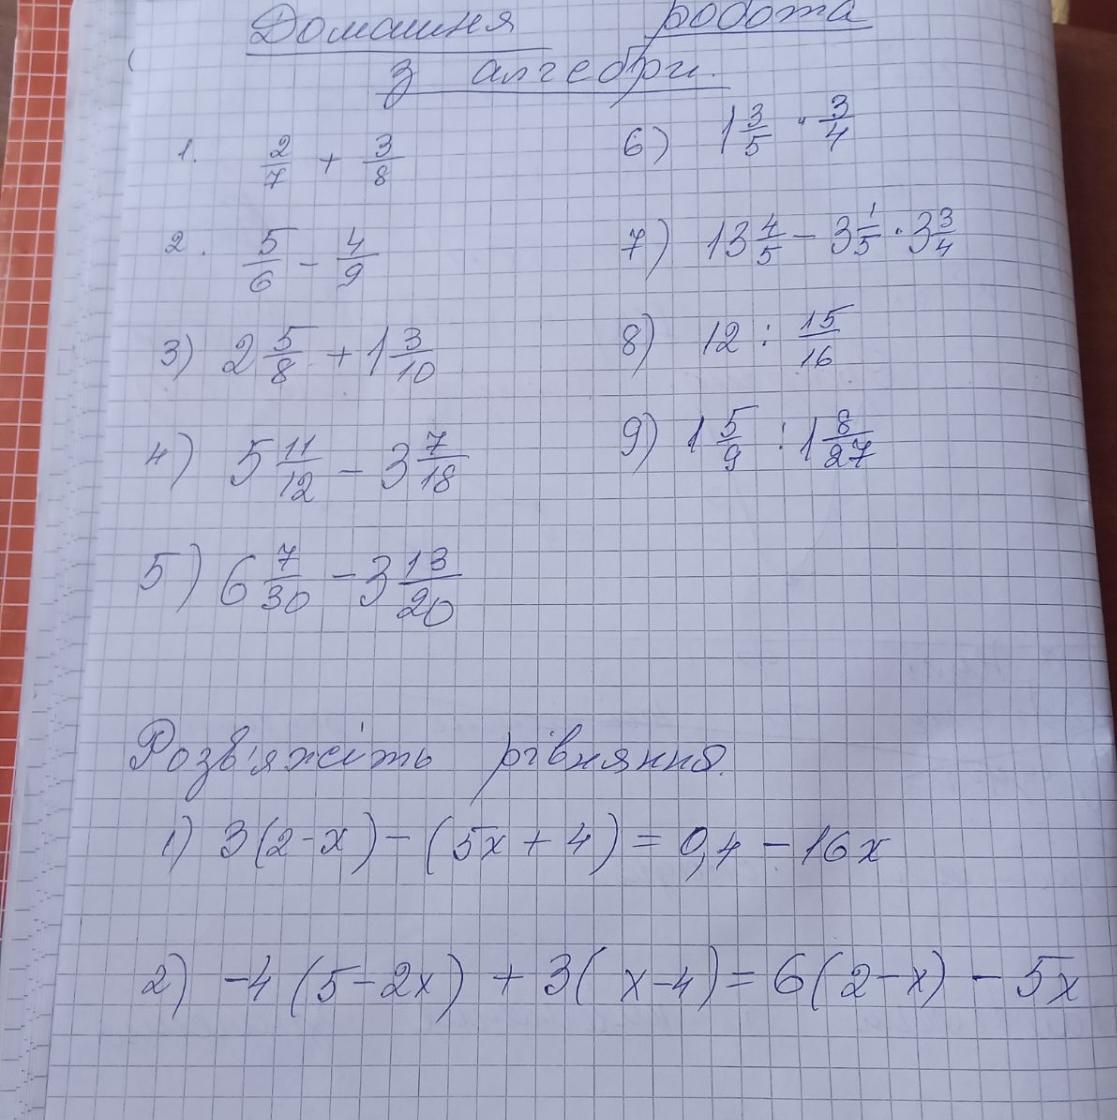 Домашня робота
з алгебри.
1. 2/7 + 3/8
2. 5/6 - 4/9
3) 2 5/8 + 1 3/10
4) 5 11/12 - 3 7/18
5) 6 7/30 - 3 13/20
6) 1 3/5 · 3/4
7) 13 4/5 - 3 1/5 · 3 3/4
8) 12 : 15/16
9) 1 5/9 : 1 8/27
Розв'яжіть рівняння.
1) 3(2-x) - (5x + 4) = 0,4 - 16x
2) -4(5-2x) + 3(x-4) = 6(2-x) - 5x